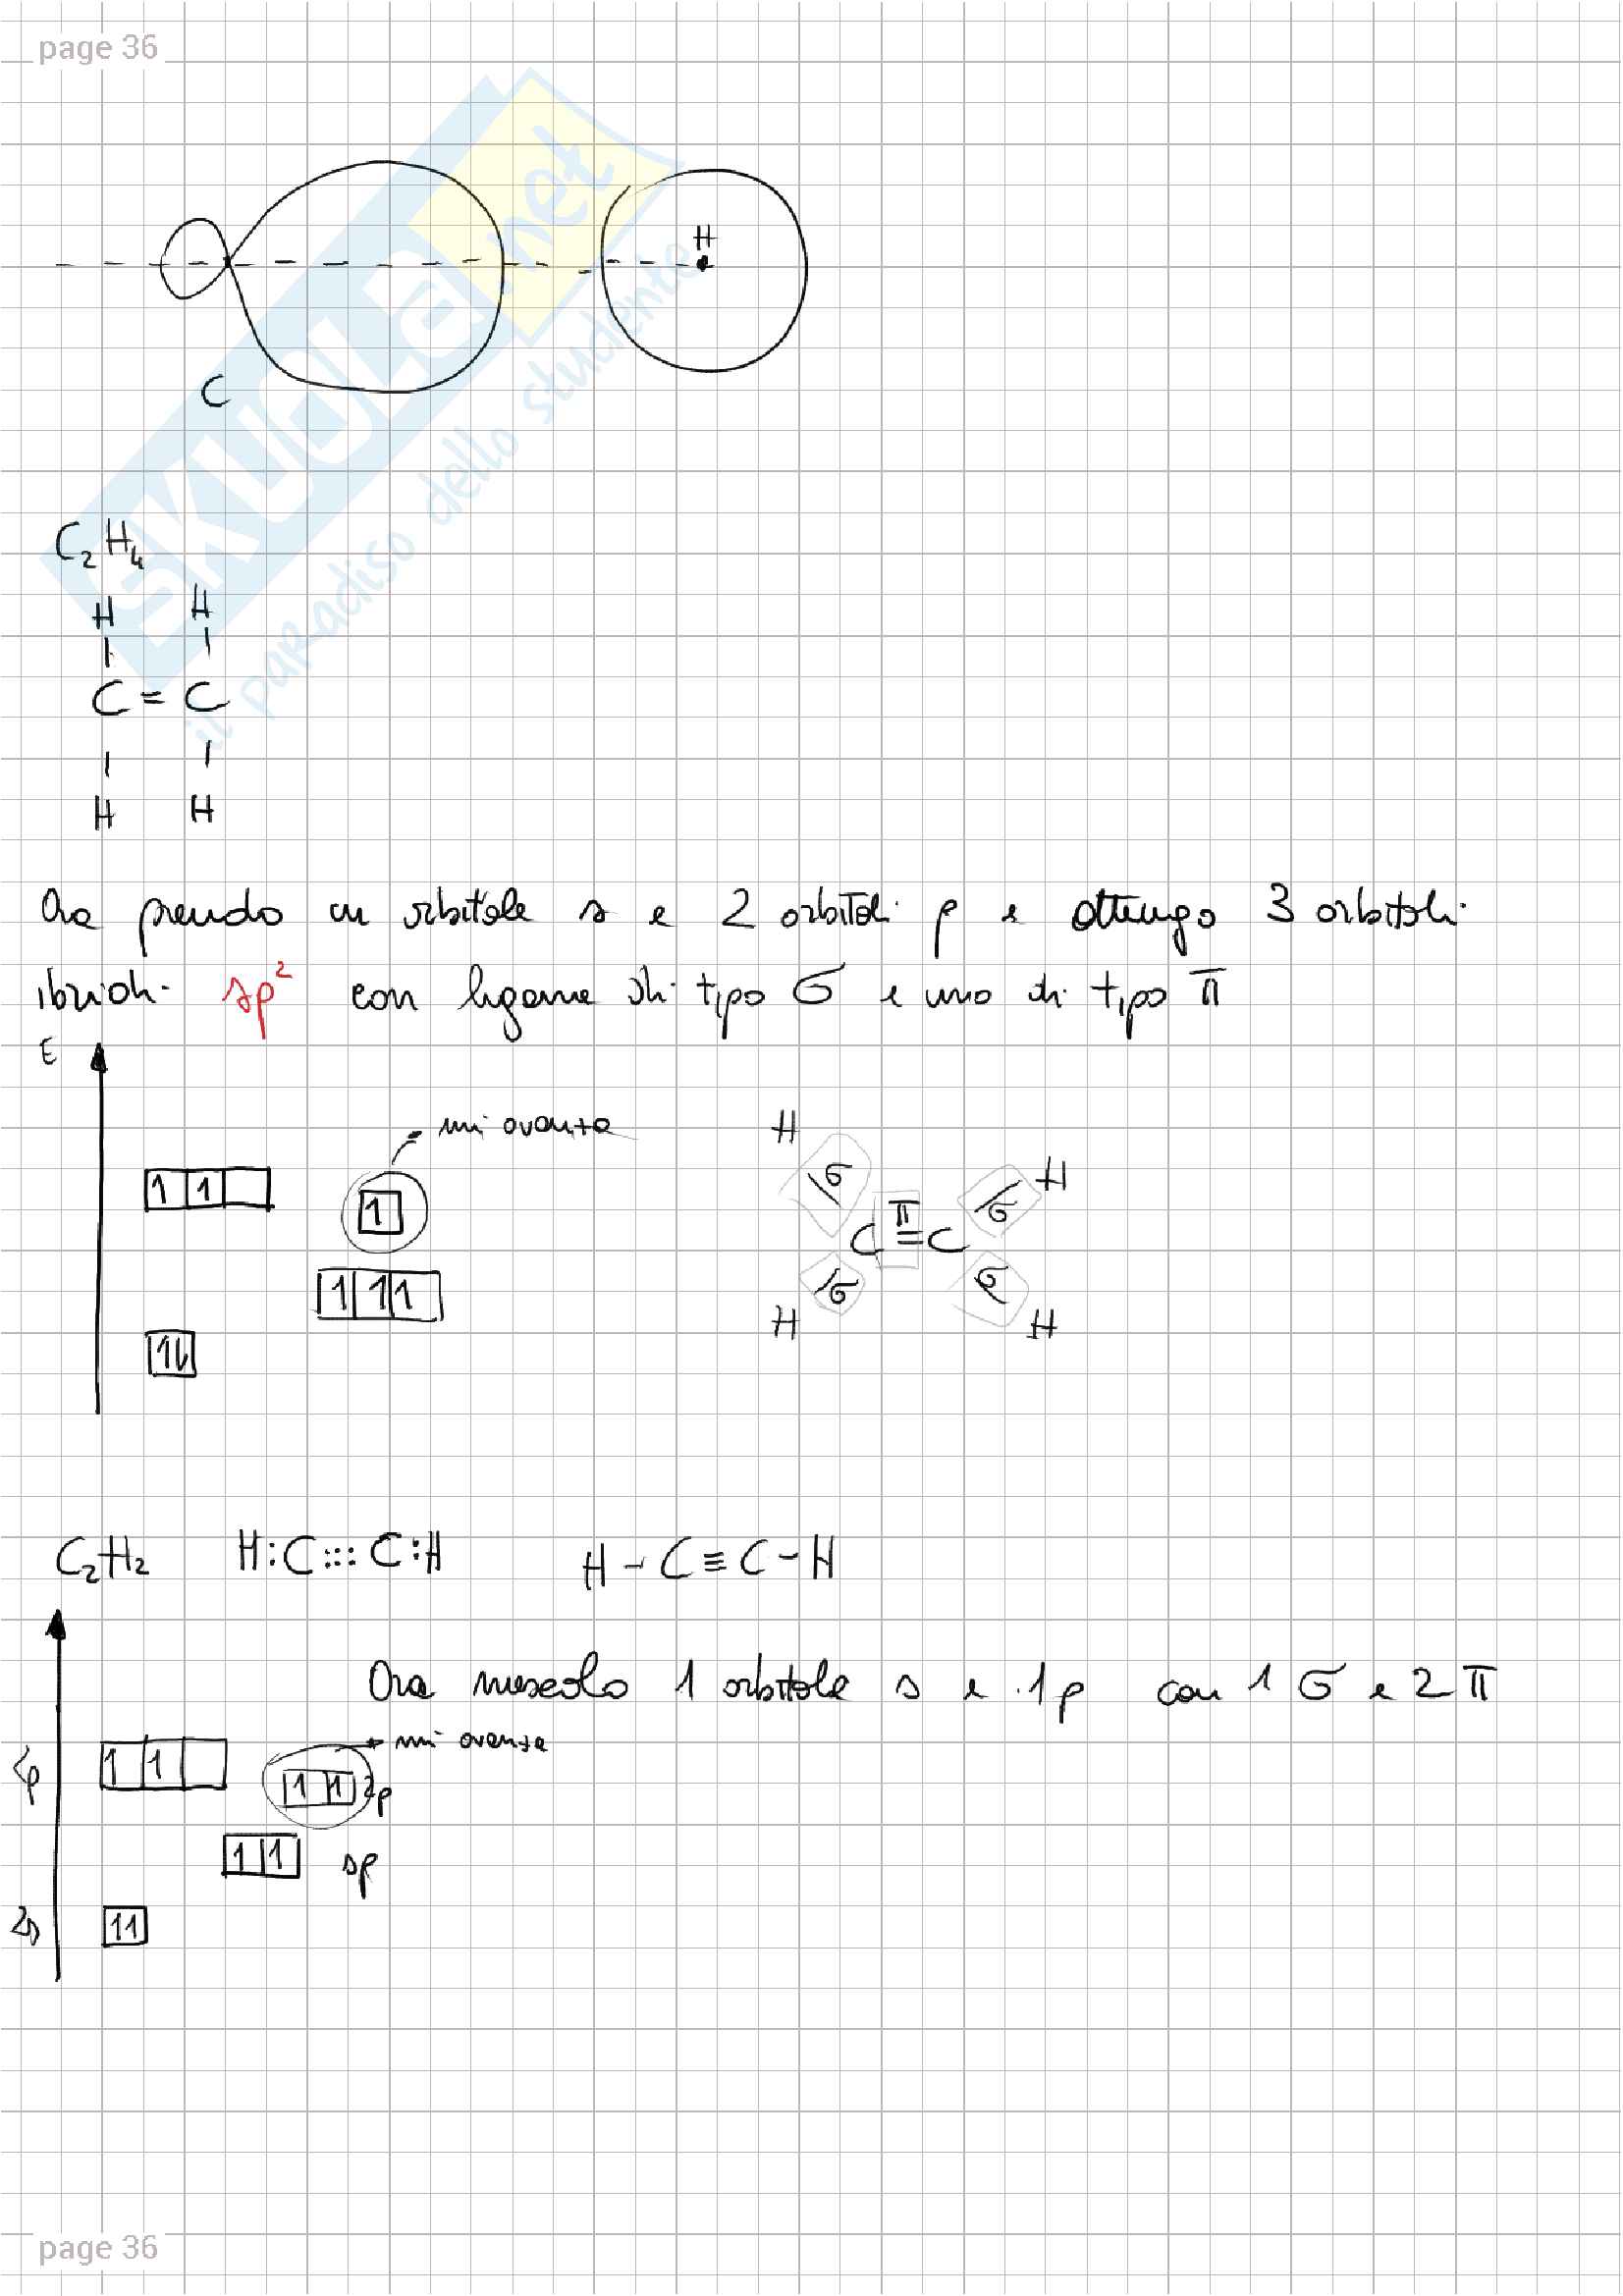 page 36
SKUOLA.net
il paradiso dello studente
H
C
C₂H₄
H H
| |
C = C
| |
H H
Ora prendo un orbitale s e 2 orbitali p e ottengo 3 orbitali
ibridi sp² con legame di tipo σ e uno di tipo π
E
mi avanza
1 1
1
1 1 1
1l
H H
σ σ
C π = C
σ σ
H H
C₂H₂ H:C:::C:H H-C≡C-H
Ora mescolo 1 orbitale s e 1p con 1 σ e 2 π
mi avanza
2p 1 1
1 1 2p
1 1 sp
2s 11
page 36